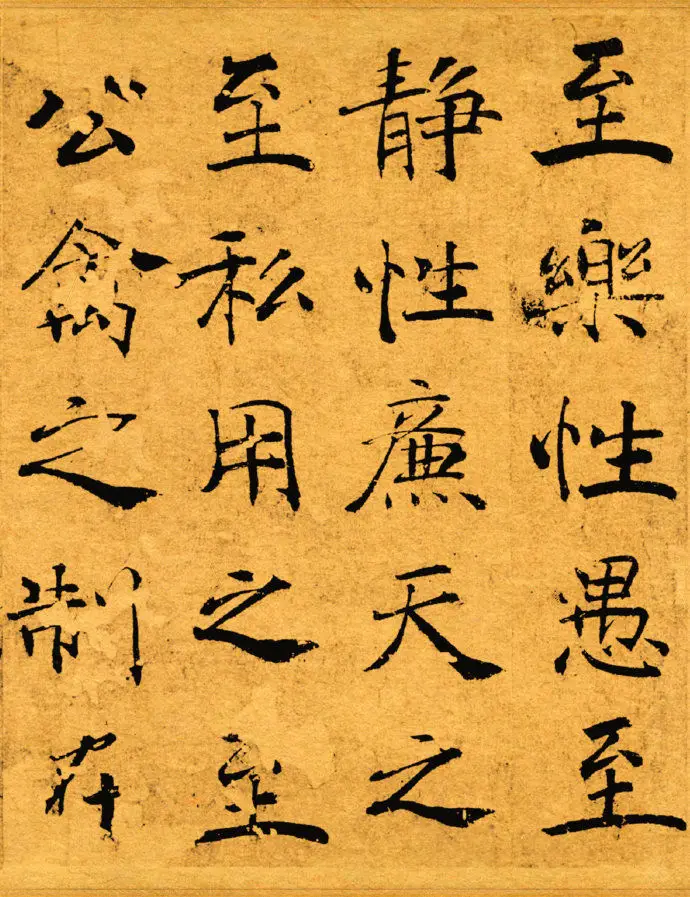 至樂性愚至
静性廉天之
至私用之至
公禽之制在